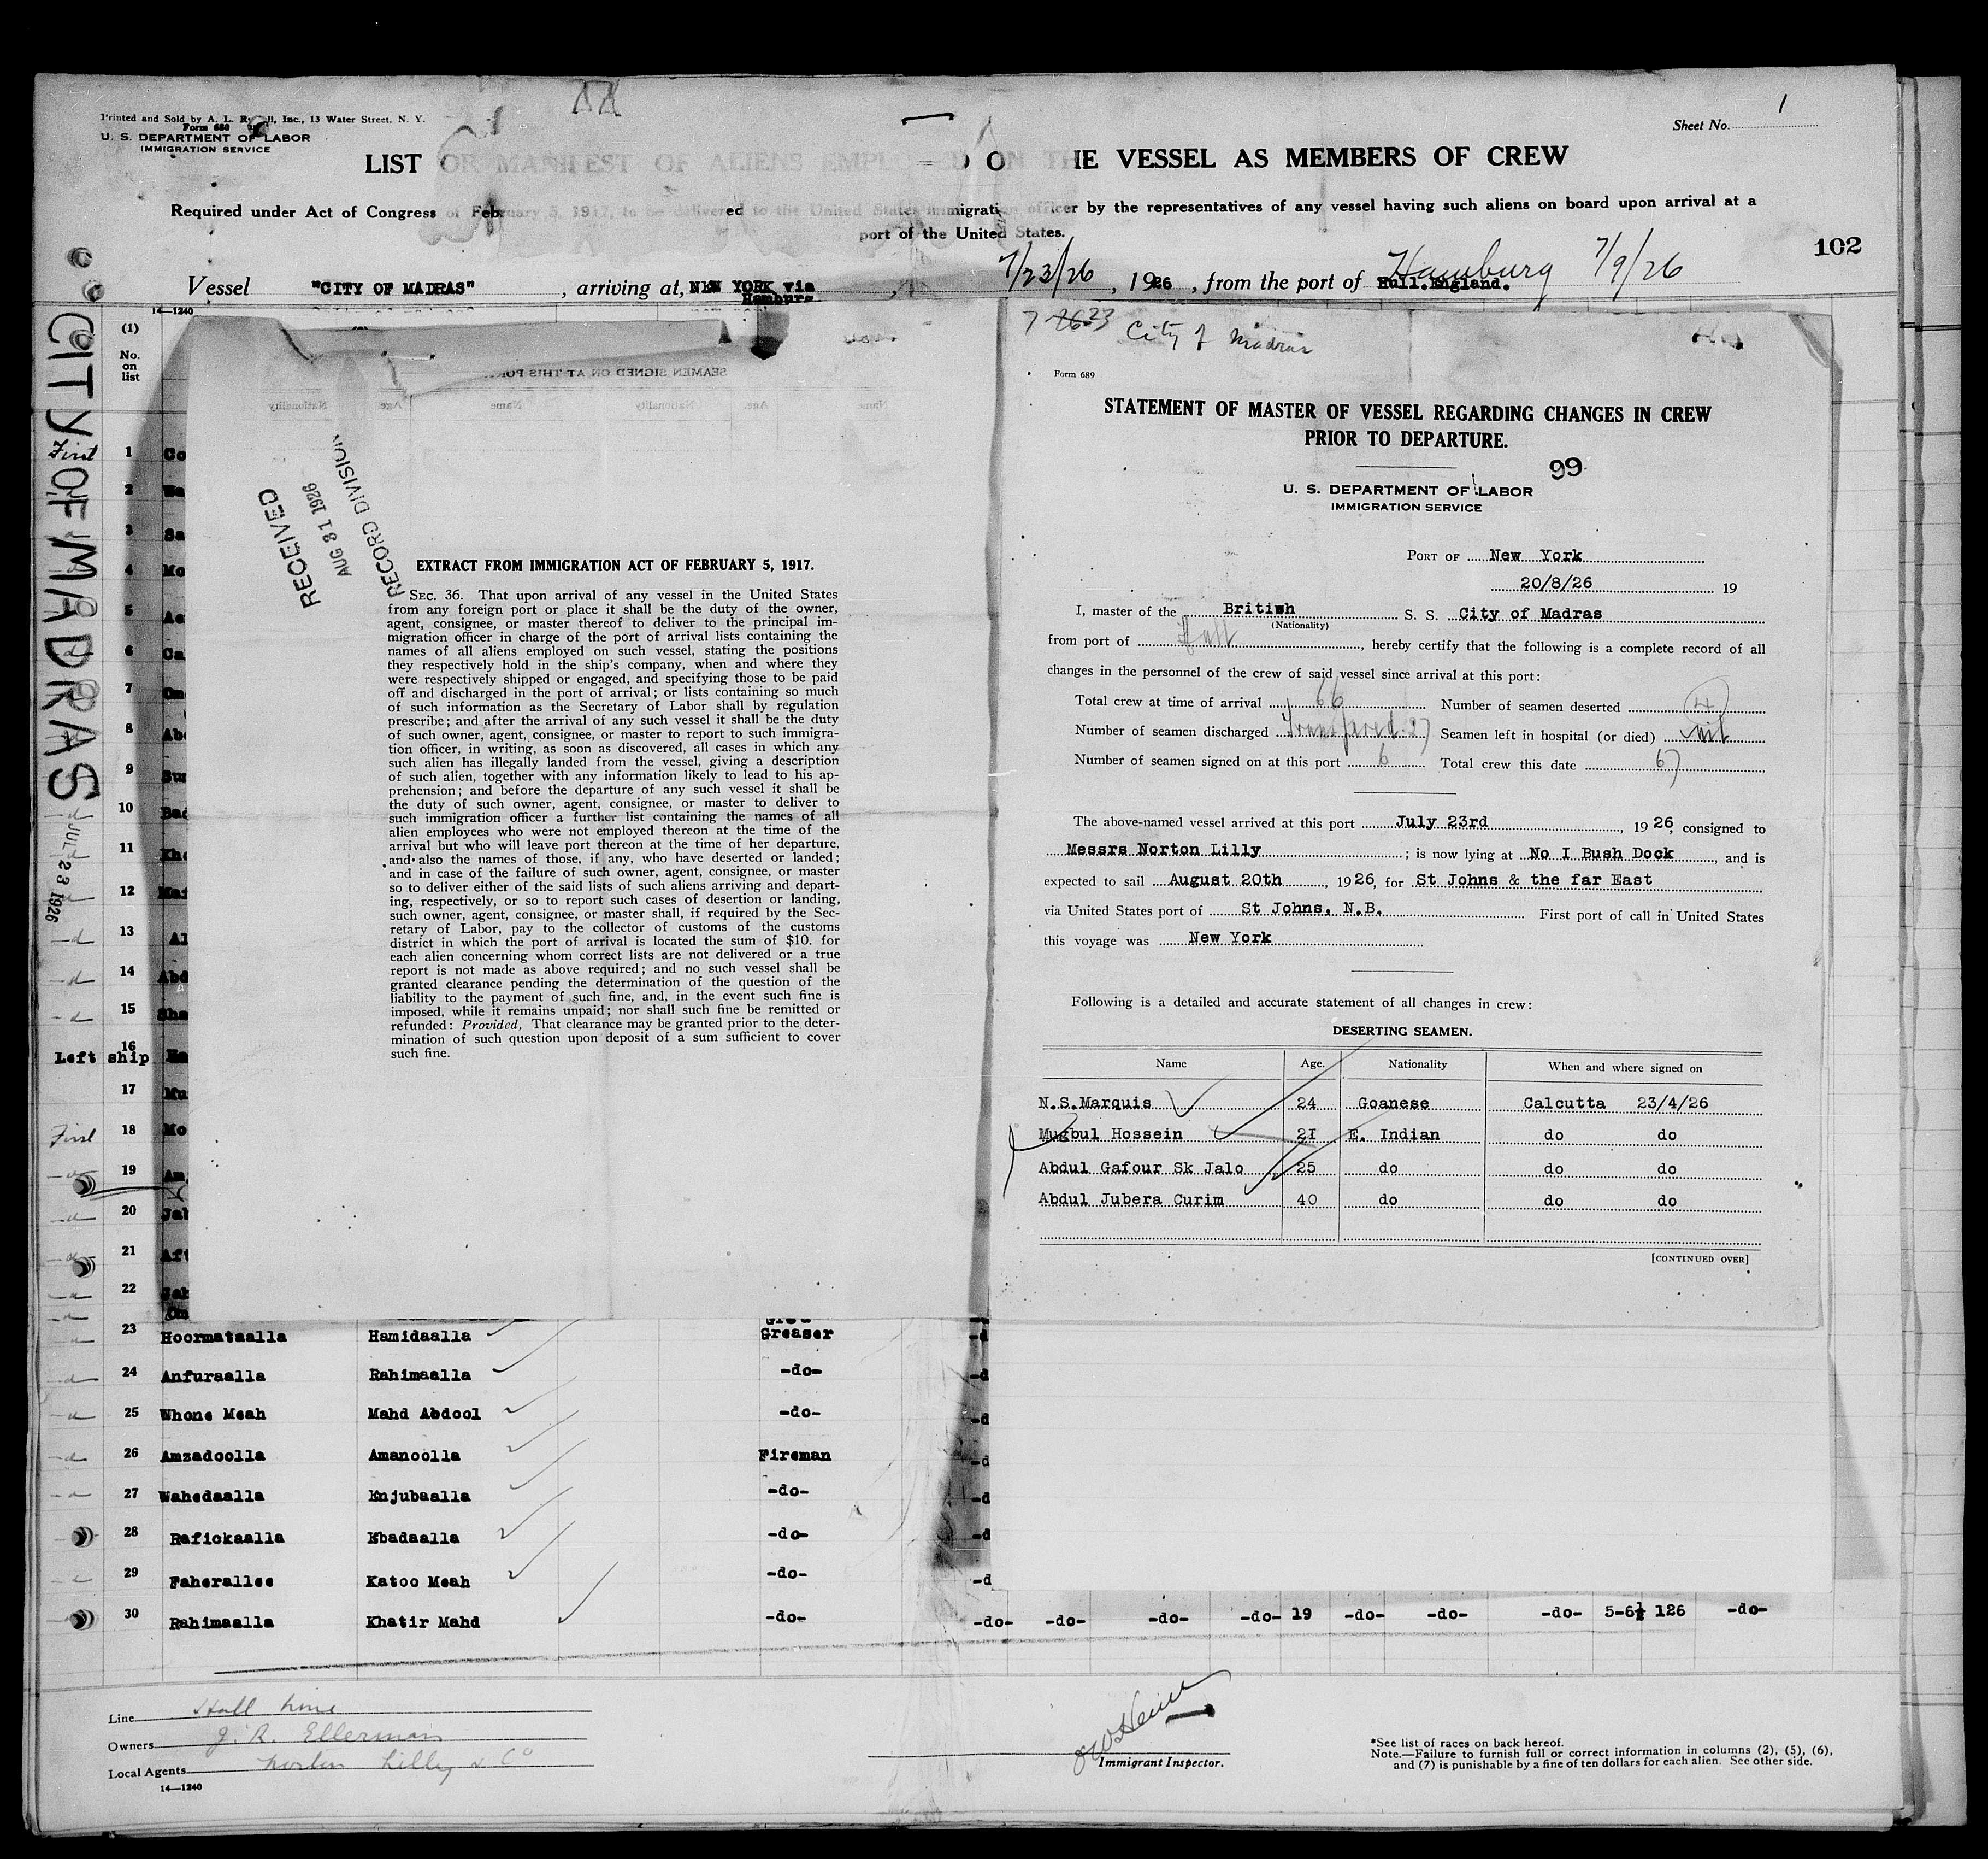 Printed and Sold by A. L. Inc., 13 Water Street, N. Y.
Form 680
U. S. DEPARTMENT OF LABOR
IMMIGRATION SERVICE
Sheet No. 1
LIST OR MANIFEST OF ALIENS EMPLOYED ON THE VESSEL AS MEMBERS OF CREW
Required under Act of Congress of February 5, 1917, to be delivered to the United States immigration officer by the representatives of any vessel having such aliens on board upon arrival at a
port of the United States.
102
Vessel "CITY OF MADRAS", arriving at, NEW YORK via Hamburg, 7/23/26, 1926, from the port of Hull.England. Hamburg 7/9/26
14—1240
CITY OF MADRAS
JUL 23 1926
(1)
No.
on
list
First 1 Co
2 Wa
3 Sa
4 Mo
5 Ae
6 Ca
7 On
8 Abd
9 Sum
10 Bad
11 Kho
12 Maf
13 Al
14 Abd
15 Sha
16 Left ship
17 Mu
First 18 Mo
19 Am
20 Jab
21 Aft
22 Jab
23 Hoormataalla Hamidaalla Greaser
24 Anfuraalla Rahimaalla -do-
25 Whone Meah Mahd Abdool -do-
26 Amzadoolla Amanoolla Fireman
27 Wahedaalla Enjubaalla -do-
28 Rafickaalla Ebadaalla -do-
29 Faherallee Katoo Meah -do-
30 Rahimaalla Khatir Mahd -do- -do- -do- -do- -do- 19 -do- -do- -do- 5-6½ 126 -do-
SEAMEN SIGNED ON AT THIS PORT
Name Age. Nationality Name Age. Nationality
RECEIVED
AUG 31 1926
RECORD DIVISION
EXTRACT FROM IMMIGRATION ACT OF FEBRUARY 5, 1917.
SEC. 36. That upon arrival of any vessel in the United States
from any foreign port or place it shall be the duty of the owner,
agent, consignee, or master thereof to deliver to the principal im-
migration officer in charge of the port of arrival lists containing the
names of all aliens employed on such vessel, stating the positions
they respectively hold in the ship's company, when and where they
were respectively shipped or engaged, and specifying those to be paid
off and discharged in the port of arrival; or lists containing so much
of such information as the Secretary of Labor shall by regulation
prescribe; and after the arrival of any such vessel it shall be the duty
of such owner, agent, consignee, or master to report to such immigra-
tion officer, in writing, as soon as discovered, all cases in which any
such alien has illegally landed from the vessel, giving a description
of such alien, together with any information likely to lead to his ap-
prehension; and before the departure of any such vessel it shall be
the duty of such owner, agent, consignee, or master to deliver to
such immigration officer a further list containing the names of all
alien employees who were not employed thereon at the time of the
arrival but who will leave port thereon at the time of her departure,
and also the names of those, if any, who have deserted or landed;
and in case of the failure of such owner, agent, consignee, or master
so to deliver either of the said lists of such aliens arriving and depart-
ing, respectively, or so to report such cases of desertion or landing,
such owner, agent, consignee, or master shall, if required by the Sec-
retary of Labor, pay to the collector of customs of the customs
district in which the port of arrival is located the sum of $10. for
each alien concerning whom correct lists are not delivered or a true
report is not made as above required; and no such vessel shall be
granted clearance pending the determination of the question of the
liability to the payment of such fine, and, in the event such fine is
imposed, while it remains unpaid; nor shall such fine be remitted or
refunded: Provided, That clearance may be granted prior to the deter-
mination of such question upon deposit of a sum sufficient to cover
such fine.
7 26 23 City of Madras
Form 689
STATEMENT OF MASTER OF VESSEL REGARDING CHANGES IN CREW
PRIOR TO DEPARTURE.
99
U. S. DEPARTMENT OF LABOR
IMMIGRATION SERVICE
PORT OF New York
20/8/26 19
I, master of the British S. S. City of Madras
(Nationality)
from port of Hull, hereby certify that the following is a complete record of all
changes in the personnel of the crew of said vessel since arrival at this port:
Total crew at time of arrival 66 Number of seamen deserted 4
Number of seamen discharged Seamen left in hospital (or died) nil
Number of seamen signed on at this port 6 Total crew this date 67
The above-named vessel arrived at this port July 23rd, 1926, consigned to
Messrs Norton Lilly; is now lying at No I Bush Dock, and is
expected to sail August 20th, 1926, for St Johns & the far East
via United States port of St Johns, N.B. First port of call in United States
this voyage was New York
Following is a detailed and accurate statement of all changes in crew:
DESERTING SEAMEN.
Name Age. Nationality When and where signed on
N.S.Marquis 24 Goanese Calcutta 23/4/26
Mugbul Hossein 2I E. Indian do do
Abdul Gafour Sk Jalo 25 do do do
Abdul Jubera Curim 40 do do do
[CONTINUED OVER]
Line Hall Line
Owners J. R. Ellerman
Local Agents Norton Lilley & Co
14—1240
Immigrant Inspector.
*See list of races on back hereof.
Note.—Failure to furnish full or correct information in columns (2), (5), (6),
and (7) is punishable by a fine of ten dollars for each alien. See other side.